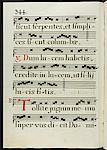 344.
scut serpentes, et simpli
ces sicut columbæ.
℣. Dum lucem habetis,
credite in lucem, ut filij
lucis sitis.
Tollite jugum meum
super vos dicit Do